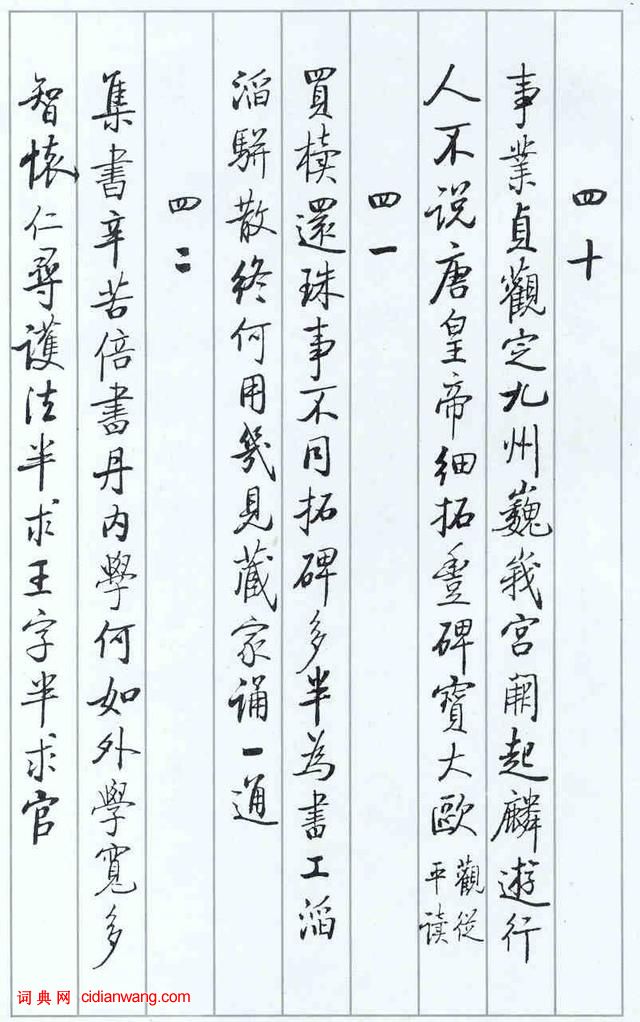 四十
事業貞觀定九州巍峩宮闕起麟遊行
人不说唐皇帝細拓豐碑寶大歐觀從平读
四一
買櫝還珠事不同拓碑多半為書工滔
滔駢散終何用幾見藏家誦一通
四二
集書辛苦倍書丹内學何如外學寬多
智懷仁尋護法半求王字半求官
词典网 cidianwang.com